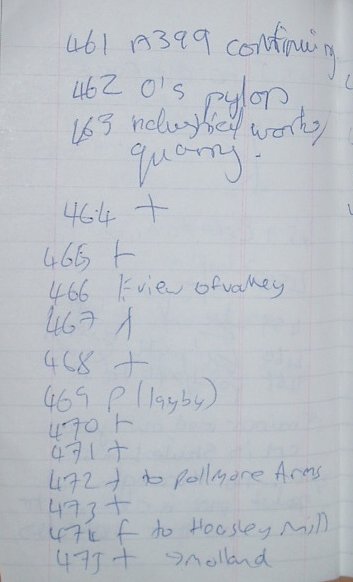 461 A399 continuing
462 O's pylon
463 industrial works/
quarry.
464 +
465 +
466 E view of valley
467
468 +
469 P (layby)
470 +
471 +
472 + to Pollmore Arms
473 +
474 to Hoasley Mill
475 + Molland